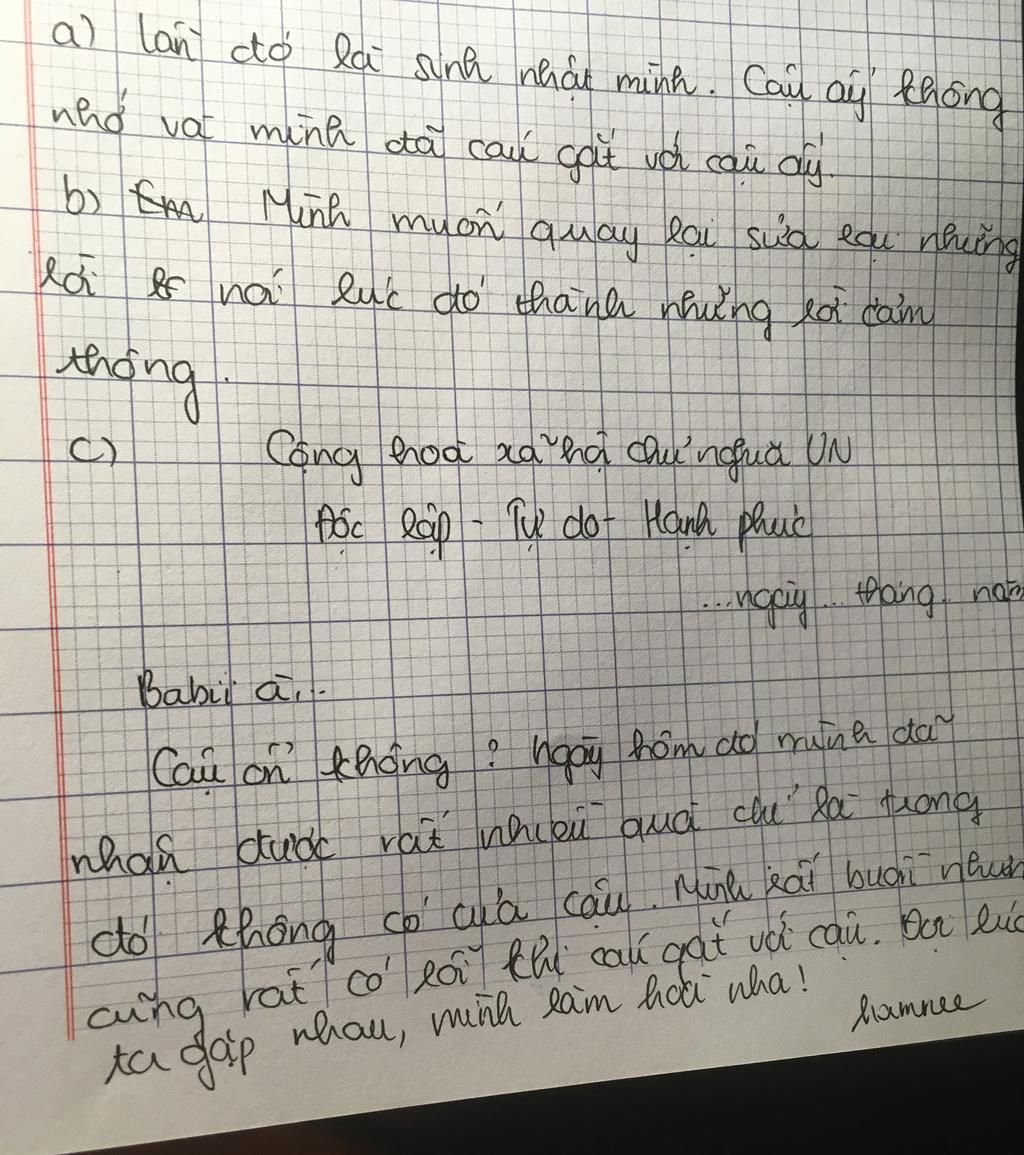 a) lần đó là sinh nhật mình. Cậu ấy không
nhớ và mình đã cáu gắt với cậu ấy.
b) Em Mình muốn quay lại sửa lại những
lời nói lúc đó thành những lời cảm
thông.
c) Cộng hoà xã hội chủ nghĩa VN
Độc lập - Tự do - Hạnh phúc
...ngày... tháng.. năm
Babii à...
Cậu ổn không? Ngày hôm đó mình đã
nhận được rất nhiều quà chỉ là trong
đó không có của cậu. Mình rất buồn nhưn
cũng rất có lỗi khi cáu gắt với cậu. Đợi lúc
ta gặp nhau, mình làm hoà nha!
hamnee